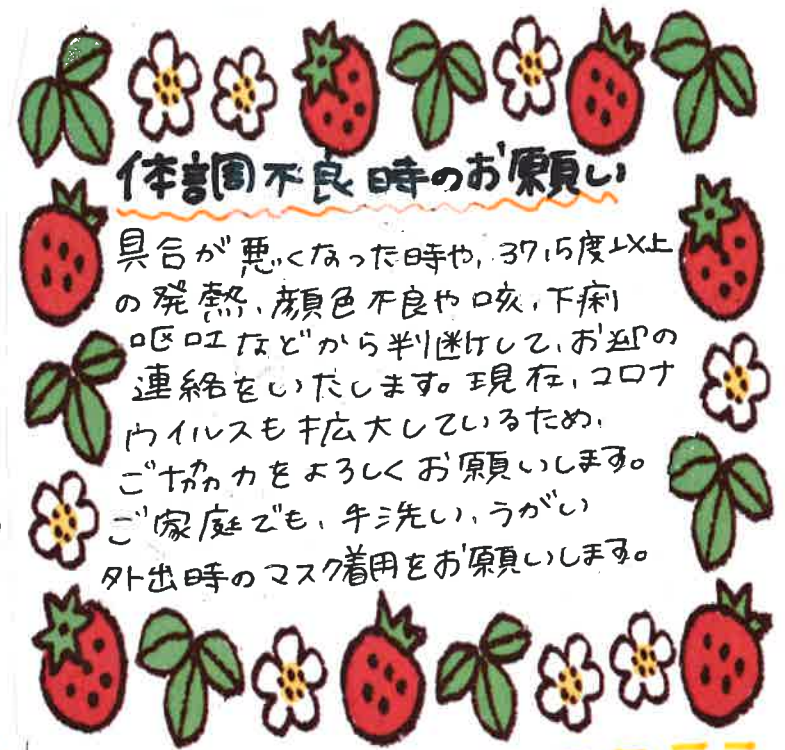 体調不良時のお願い
具合が悪くなった時や、37.5度以上
の発熱、顔色不良や咳、下痢
嘔吐などから判断して、お迎の
連絡をいたします。現在、コロナ
ウイルスも拡大しているため、
ご協力をよろしくお願いします。
ご家庭でも、手洗い、うがい
外出時のマスク着用をお願いします。